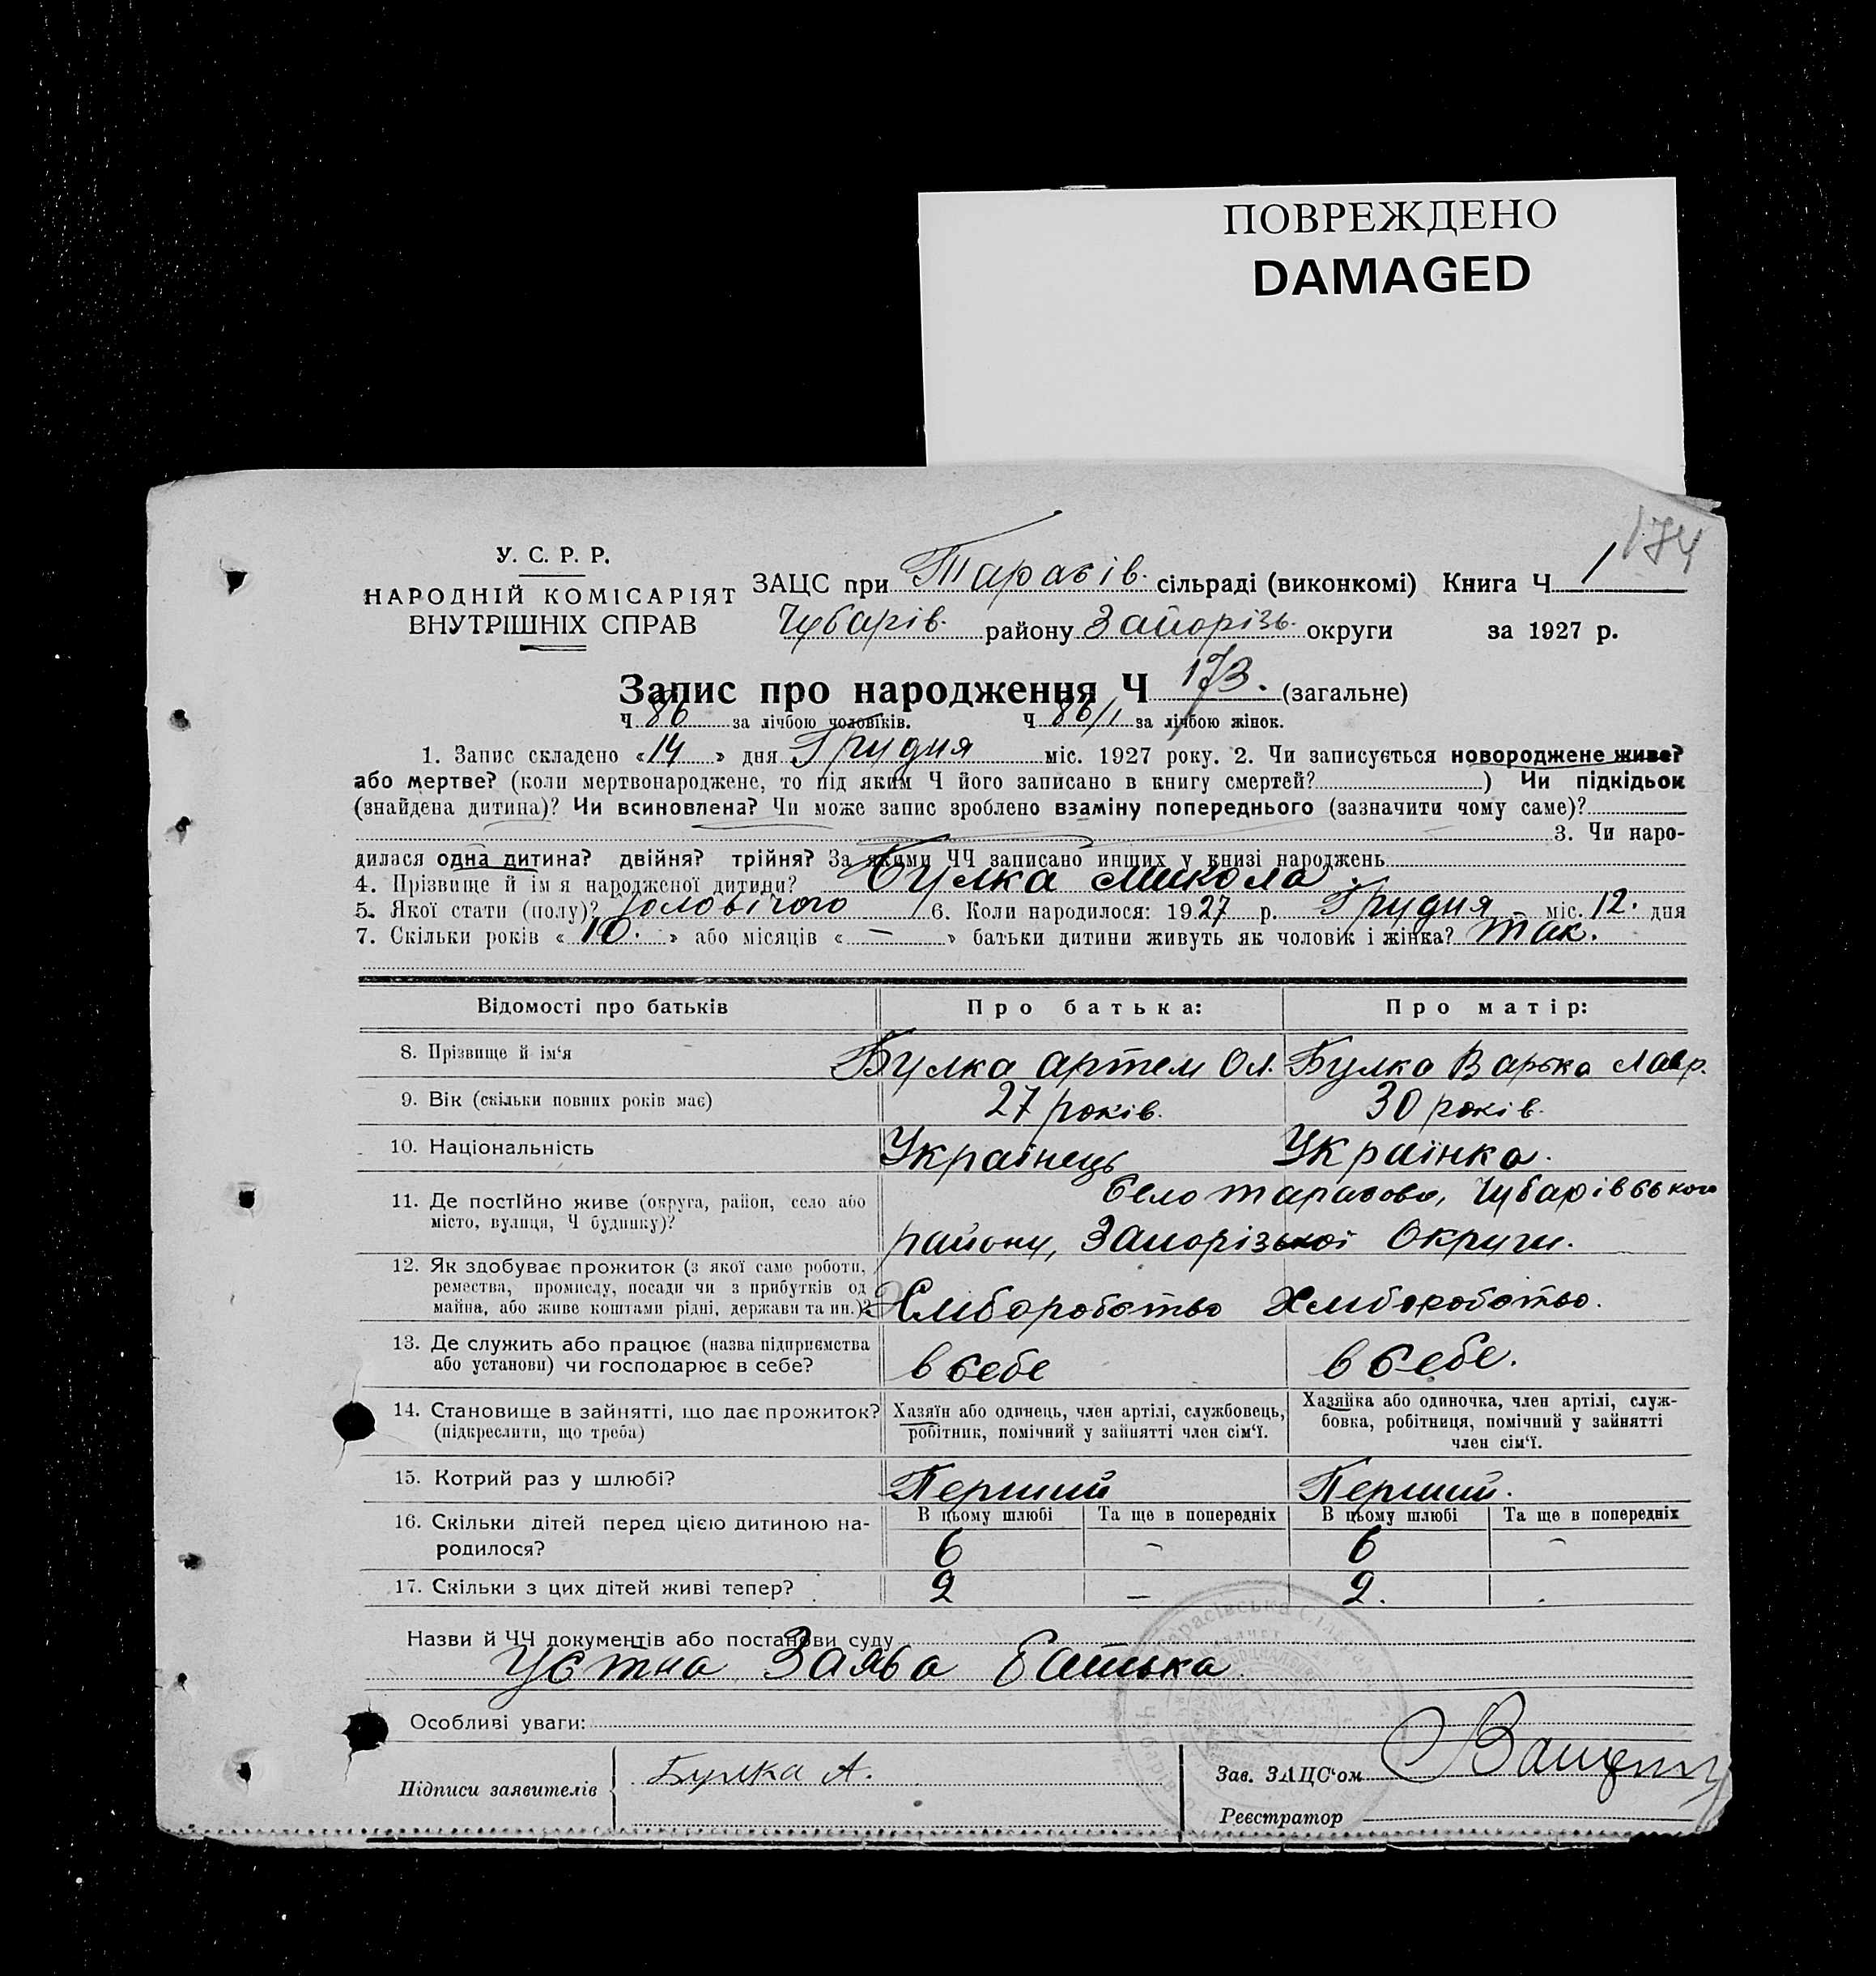 ПОВРЕЖДЕНО
DAMAGED
174
У. С. Р. Р.
НАРОДНІЙ КОМІСАРІЯТ
ВНУТРІШНІХ СПРАВ
ЗАЦС при Тарасів. сільраді (виконкомі) Книга Ч 1
Чубарів. району Запорізь. округи за 1927 р.
Запис про народження Ч 173. (загальне)
Ч 86 за лічбою чоловіків. Ч 86/1 за лічбою жінок.
1. Запис складено «14» дня Грудня міс. 1927 року. 2. Чи записується новороджене живе?
або мертве? (коли мертвонароджене, то під яким Ч його записано в книгу смертей?) Чи підкідьок
(знайдена дитина)? Чи всиновлена? Чи може запис зроблено взаміну попереднього (зазначити чому саме)?
3. Чи наро-
дилася одна дитина? двійня? трійня? За якими ЧЧ записано инших у книзі народжень
4. Прізвище й ім'я народженої дитини? Булка Микола.
5. Якої стати (полу)? Чоловічого 6. Коли народилося: 1927 р. Грудня міс. 12. дня
7. Скільки років «10.» або місяців «—» батьки дитини живуть як чоловік і жінка? так.
Відомості про батьків Про батька: Про матір:
8. Прізвище й ім'я Булка Артем Ол. Булка Варька Лавр.
9. Вік (скільки повних років має) 27 років. 30 років.
10. Національність Українець Українка.
11. Де постійно живе (округа, район, село або
місто, вулиця, Ч будинку)?
Село Тарасово, Чубарівського
району, Запорізької Округи.
12. Як здобуває прожиток (з якої саме роботи,
ремества, промислу, посади чи з прибутків од
майна, або живе коштами рідні, держави та ин.)?
Хліборобство Хліборобство.
13. Де служить або працює (назва підприємства
або установи) чи господарює в себе?
в себе в себе.
14. Становище в зайнятті, що дає прожиток?
(підкреслити, що треба)
Хазяїн або одинець, член артілі, службовець,
робітник, помічний у зайнятті член сім'ї.
Хазяйка або одиночка, член артілі, служ-
бовка, робітниця, помічний у зайнятті
член сім'ї.
15. Котрий раз у шлюбі? Перший Перший.
16. Скільки дітей перед цією дитиною на-
родилося?
В цьому шлюбі Та ще в попередніх В цьому шлюбі Та ще в попередніх
6 – 6 –
17. Скільки з цих дітей живі тепер? 2 – 2.
Назви й ЧЧ документів або постанови суду
Устна Заява Батька
Особливі уваги:
Підписи заявителів Булка А.
Зав. ЗАЦС'ом
Реєстратор